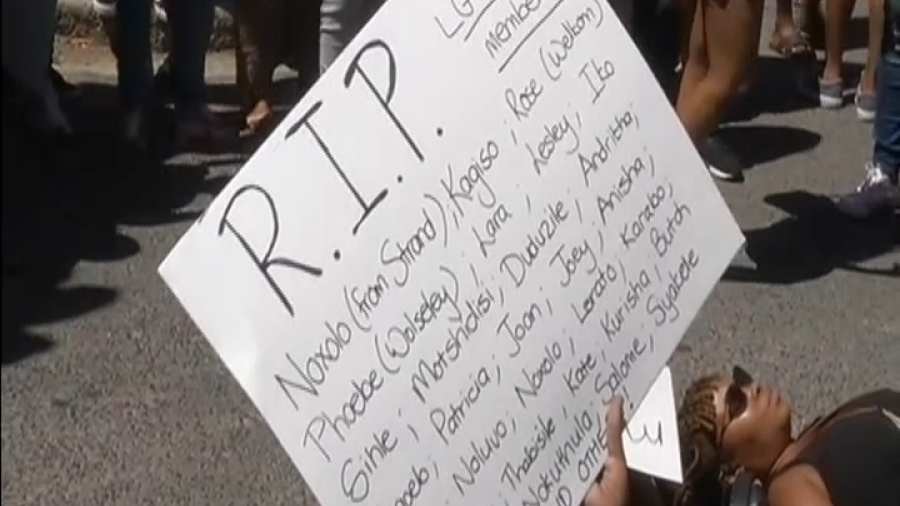 LG
membe
R.I.P.
Noxolo (from Strand), Kagiso; Rose (Welkom)
Phoebe (Wolseley); Lara; Lesley, Ito
Sihle; Motshidisi; Duduzile; Andritha;
Patricia; Joan; Joey; Anisha;
Noluvo; Noxolo; Lerato; Karabo;
Thabisile, Kate; Kurisha; Butch
Nokuthula, Salome; Siyakele
D OTHE